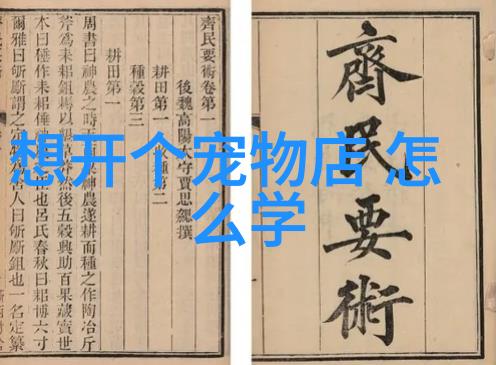 想开个宠物店 怎
么学
齊民要術
齊民要術卷第一
後魏高陽太守賈思勰撰
耕田第一 種第二
種穀第三
耕田第一
周書曰神農之時神農遂耕而種之作陶冶斤
斧爲耒耜鉏耨以墾然後五穀興助百果藏實世
本曰倕作耒耜倕神也呂氏春秋曰耜博六寸
爾雅曰斪斸謂之定舍人曰斪斸鉏也一名定纂